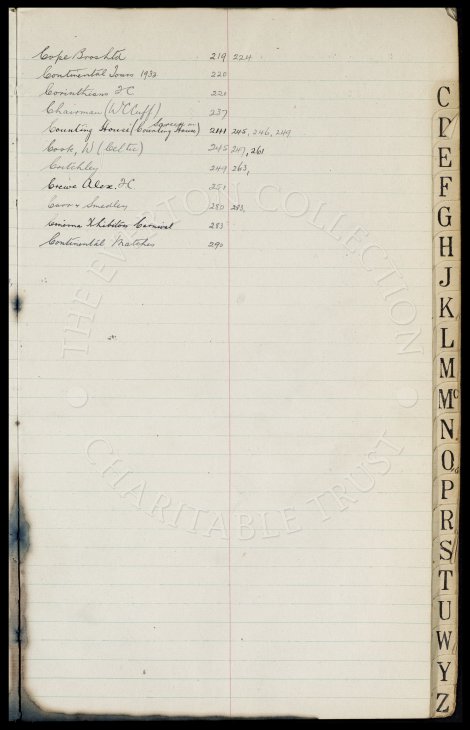 Cope Broshtd 219 224
Continental Tours 1932 220
Corinthians FC 221
Chairman (W C Cuff) 237
Counting House (Counting House) 244 245, 246, 249
Cook, W (Celtic) 245 247, 261
Critchley 249 263,
Crewe Alex. FC 251
Carr & Smedley 280 283,
Cinema Xhibitors Carnival 283
Continental Matches 290
THE EVERTON COLLECTION
CHARITABLE TRUST
C
D
E
F
G
H
J
K
L
M
Mc
N
O
P
R
S
T
U
W
Y
Z